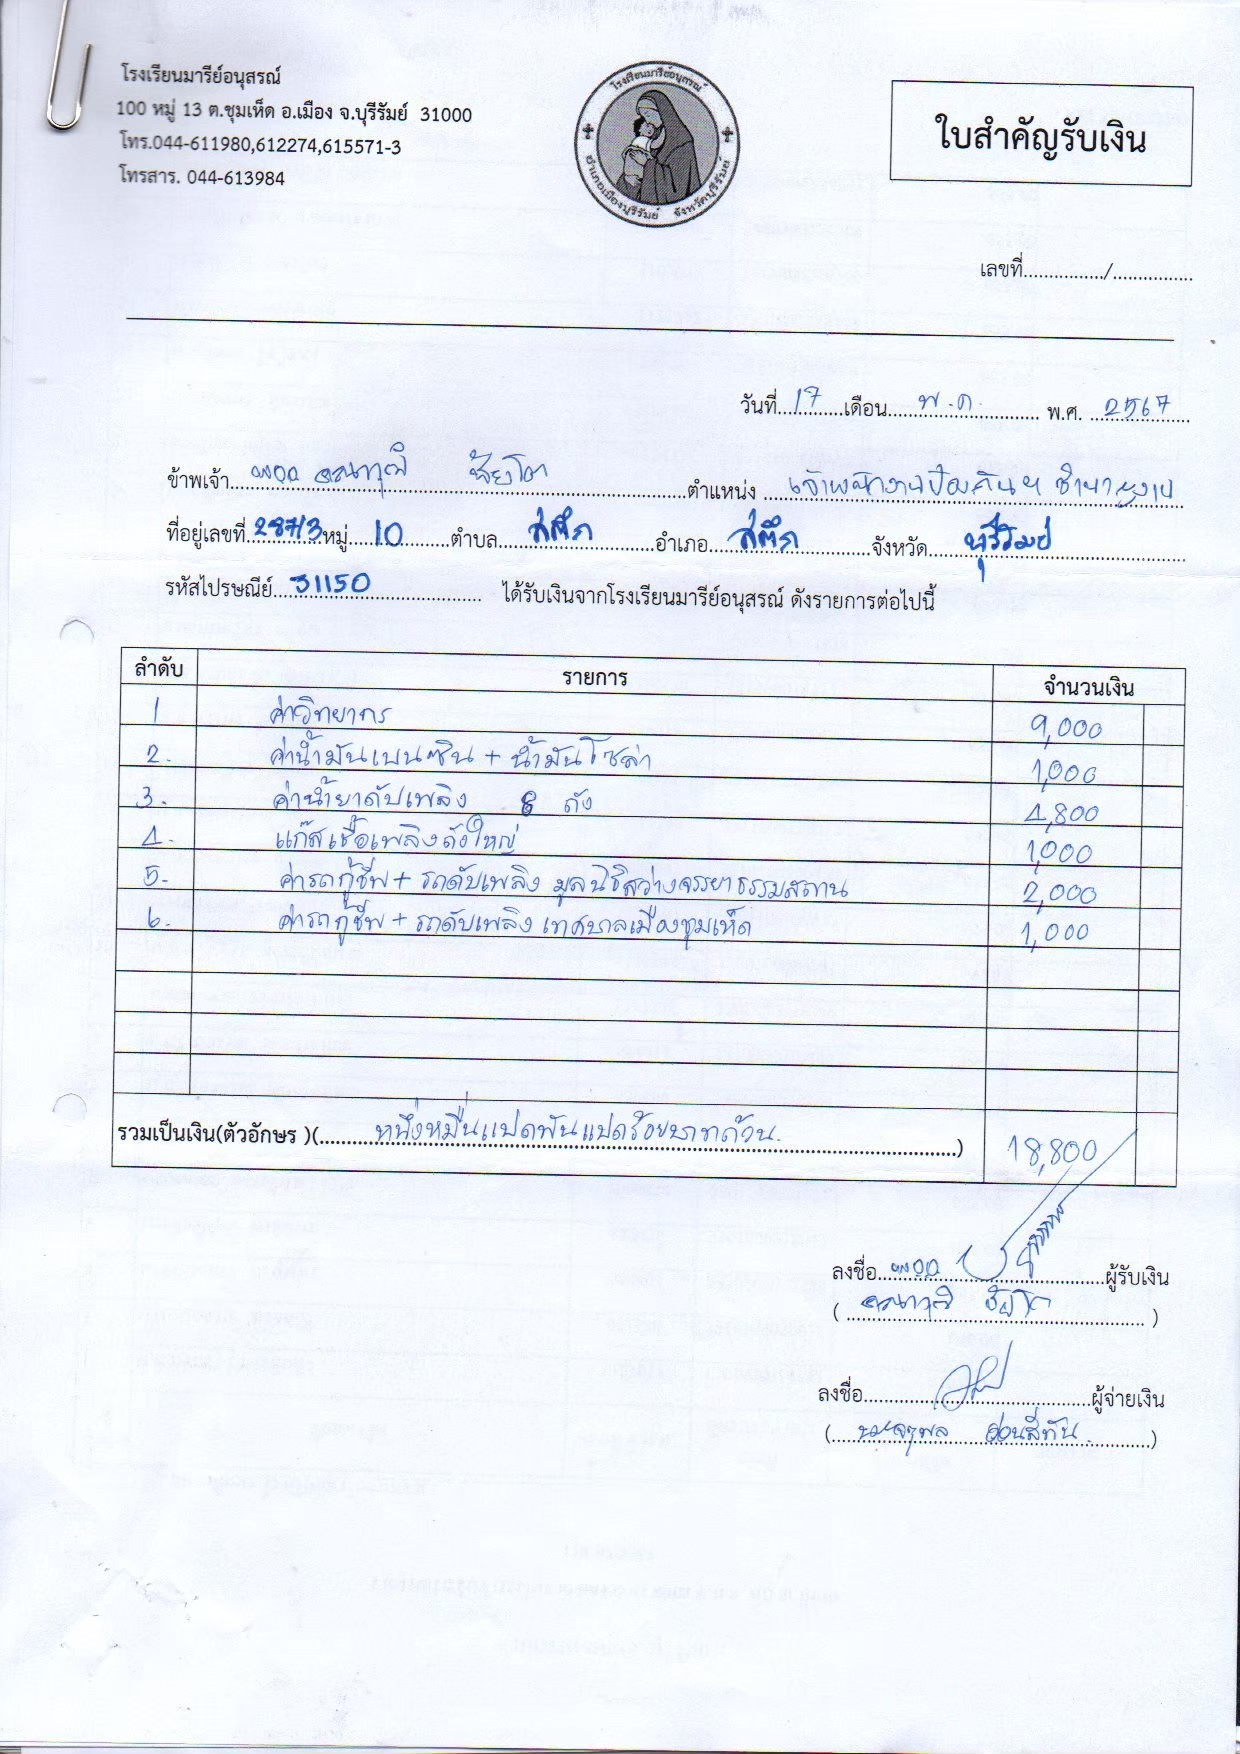 โรงเรียนมารีย์อนุสรณ์
100 หมู่ 13 ต.ชุมเห็ด อ.เมือง จ.บุรีรัมย์ 31000
โทร.044-611980,612274,615571-3
โทรสาร. 044-613984
โรงเรียนมารีย์อนุสรณ์
อำเภอเมืองบุรีรัมย์ จังหวัดบุรีรัมย์
ใบสำคัญรับเงิน
เลขที่................/................
วันที่ 17 เดือน พ.ค. พ.ศ. 2567
ข้าพเจ้า ตำแหน่ง เจ้าพนักงานป้องกันฯ ชำนาญงาน
ที่อยู่เลขที่ 287/3 หมู่ 10 ตำบล สตึก อำเภอ สตึก จังหวัด บุรีรัมย์
รหัสไปรษณีย์ 31150 ได้รับเงินจากโรงเรียนมารีย์อนุสรณ์ ดังรายการต่อไปนี้
ลำดับ รายการ จำนวนเงิน
1 ค่าวิทยากร 9,000
2. ค่าน้ำมันเบนซิน + น้ำมันโซล่า 1,000
3. ค่าน้ำยาดับเพลิง 8 ถัง 4,800
4. แก๊สเชื้อเพลิงถังใหญ่ 1,000
5. ค่ารถกู้ชีพ + รถดับเพลิง มูลนิธิสว่างจรรยาธรรมสถาน 2,000
6. ค่ารถกู้ชีพ + รถดับเพลิง เทศบาลเมืองชุมเห็ด 1,000
รวมเป็นเงิน(ตัวอักษร )( หนึ่งหมื่นแปดพันแปดร้อยบาทถ้วน. ) 18,800
ลงชื่อ ผู้รับเงิน
ลงชื่อ ผู้จ่ายเงิน